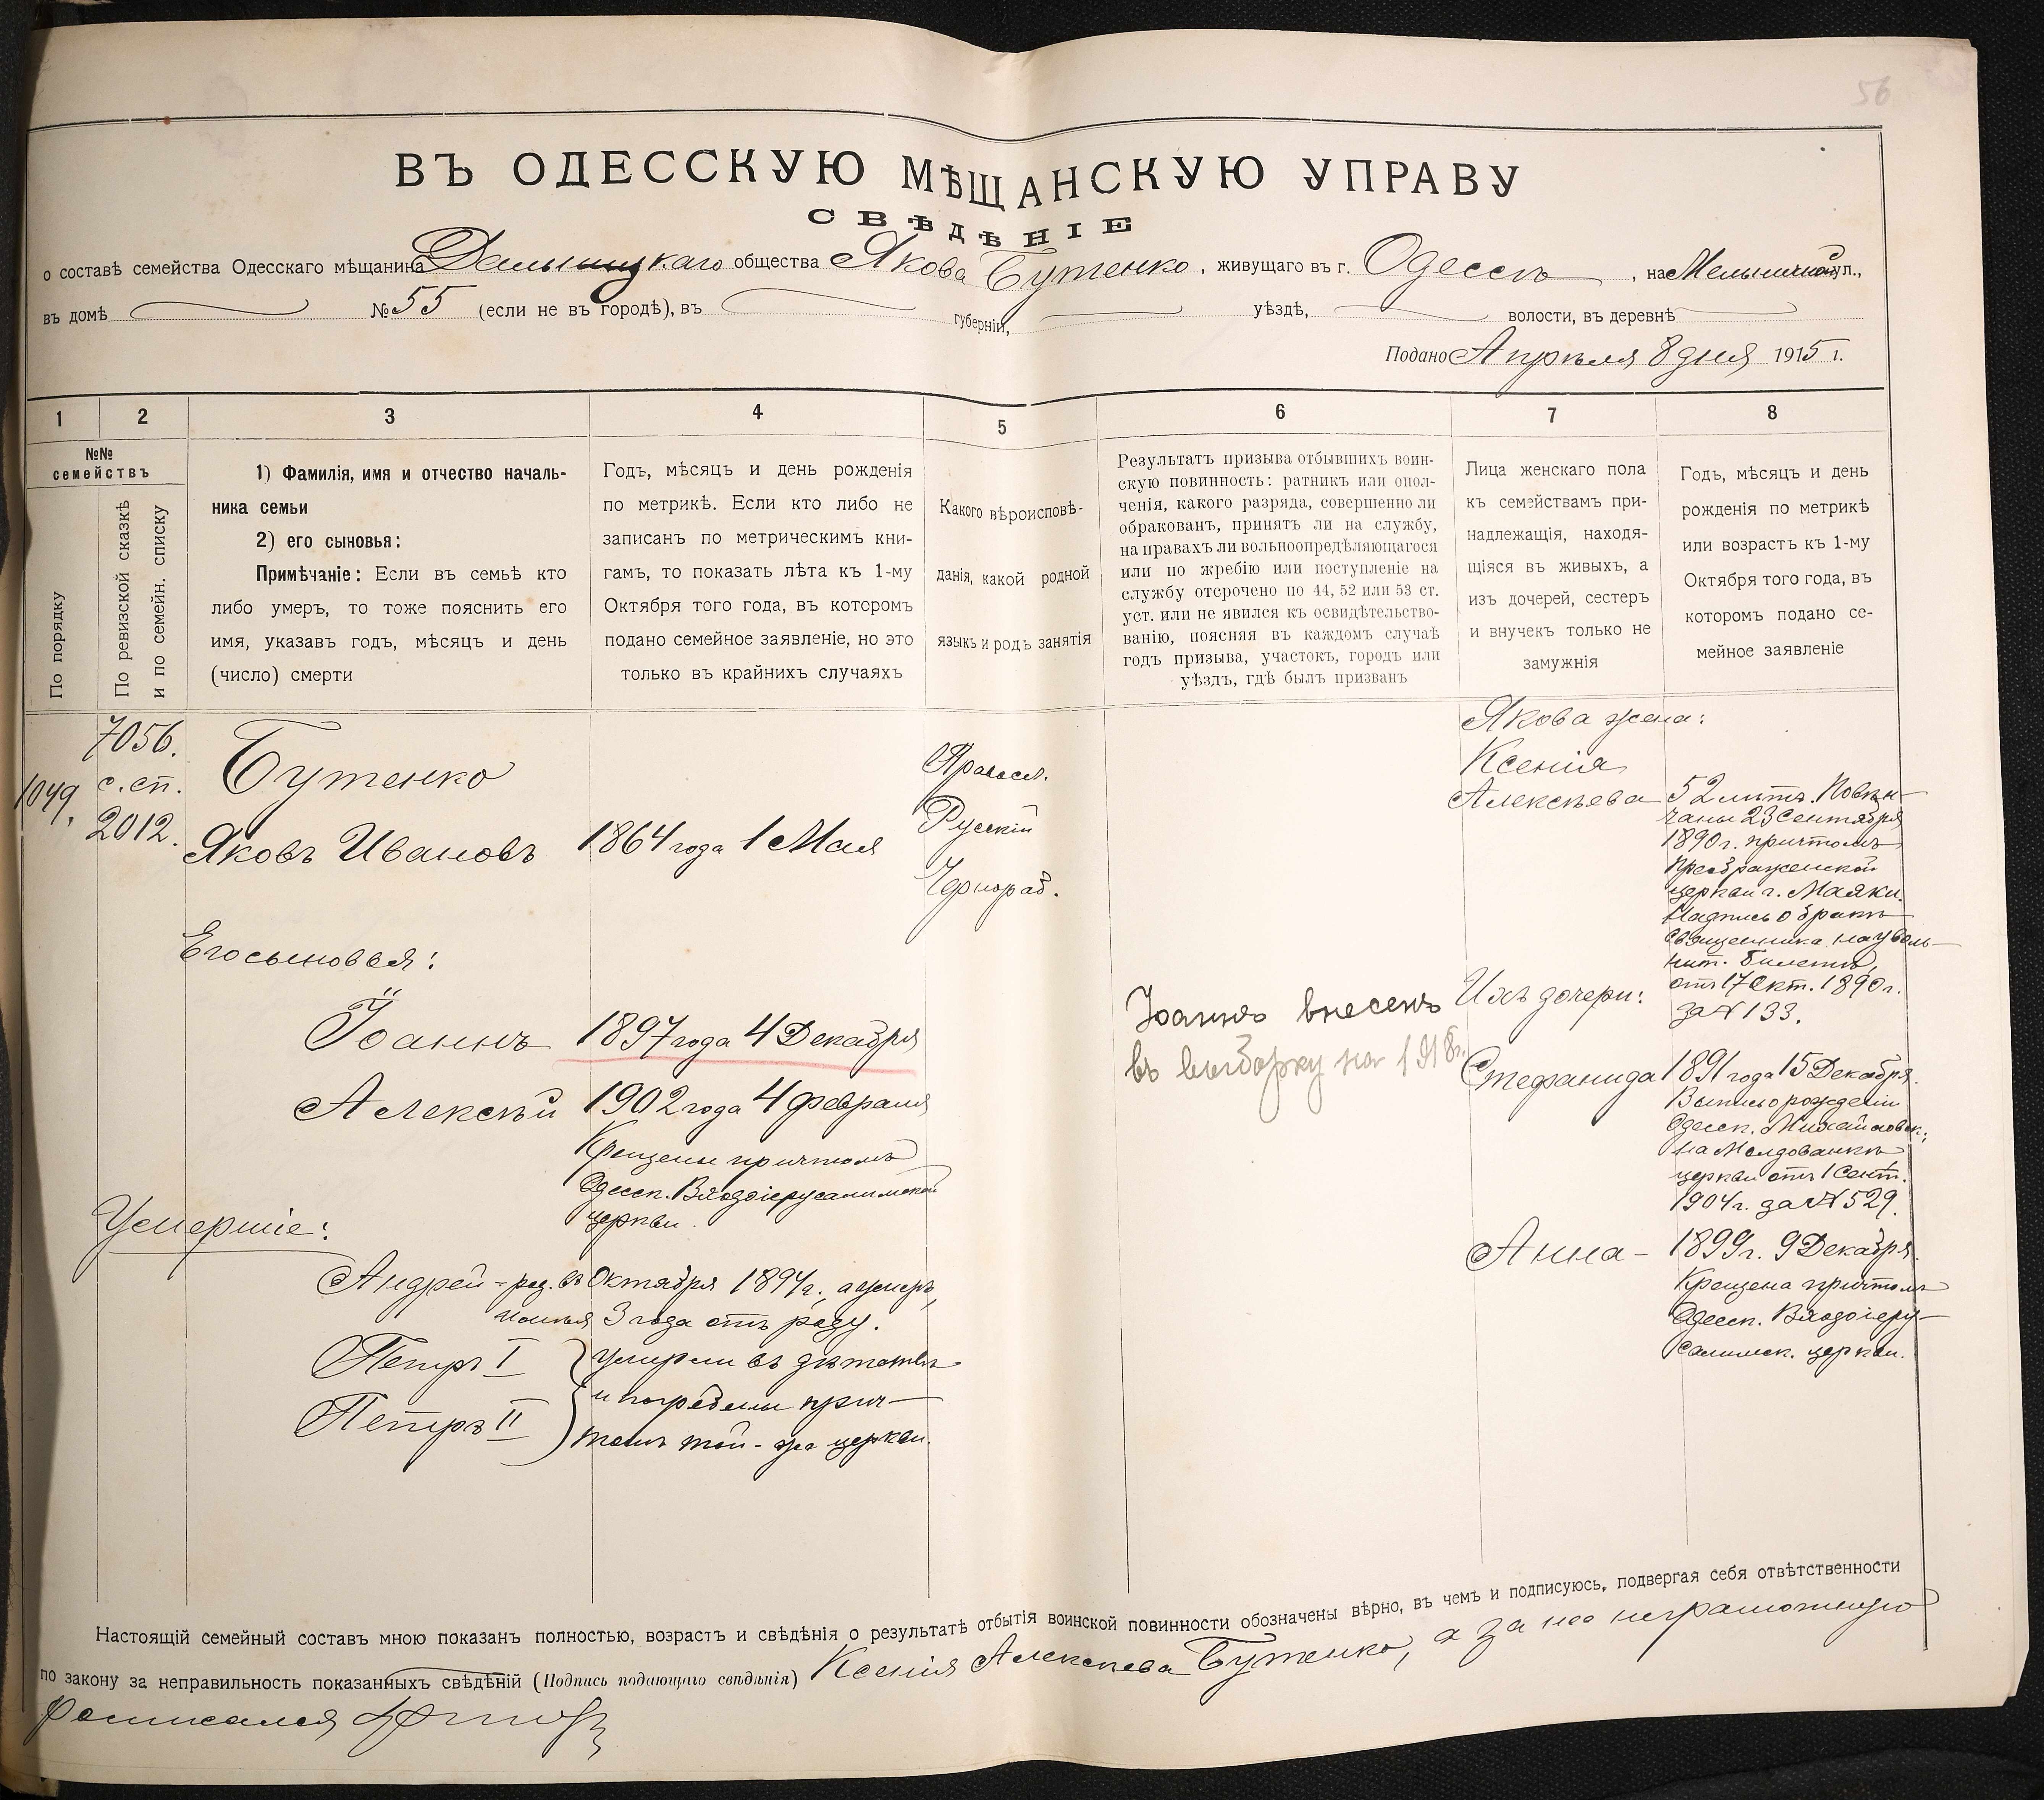 56
ВЪ ОДЕССКУЮ МѢЩАНСКУЮ УПРАВУ
СВѢДѢНІЕ
о составѣ семейства Одесскаго мѣщанина Дальницкаго общества Якова Бутенко, живущаго въ г. Одессѣ, на Мельничной ул.,
въ домѣ № 55 (если не въ городѣ), въ губерніи, уѣздѣ, волости, въ деревнѣ
Подано Апрѣля 8 дня 1915 г.
1 2 3 4 5 6 7 8
№№
семействъ
По порядку
По ревизской сказкѣ
и по семейн. списку
1) Фамилія, имя и отчество началь-
ника семьи
2) его сыновья:
Примѣчаніе: Если въ семьѣ кто
либо умеръ, то тоже пояснить его
имя, указавъ годъ, мѣсяцъ и день
(число) смерти
Годъ, мѣсяцъ и день рожденія
по метрикѣ. Если кто либо не
записанъ по метрическимъ кни-
гамъ, то показать лѣта къ 1-му
Октября того года, въ которомъ
подано семейное заявленіе, но это
только въ крайнихъ случаяхъ
Какого вѣроисповѣ-
данія, какой родной
языкъ и родъ занятія
Результатъ призыва отбывшихъ воин-
скую повинность: ратникъ или опол-
ченія, какого разряда, совершенно ли
обракованъ, принятъ ли на службу,
на правахъ ли вольноопредѣляющагося
или по жребію или поступленіе на
службу отсрочено по 44, 52 или 53 ст.
уст. или не явился къ освидѣтельство-
ванію, поясняя въ каждомъ случаѣ
годъ призыва, участокъ, городъ или
уѣздъ, гдѣ былъ призванъ
Лица женскаго пола
къ семействамъ при-
надлежащія, находя-
щіяся въ живыхъ, а
изъ дочерей, сестеръ
и внучекъ только не
замужнія
Годъ, мѣсяцъ и день
рожденія по метрикѣ
или возрастъ къ 1-му
Октября того года, въ
которомъ подано се-
мейное заявленіе
1049.
7056.
с. сп.
2012.
Бутенко
Яковъ Ивановъ 1864 года 1 Мая
Правосл.
Русскій
Чернораб.
Его сыновья:
Іоаннъ 1897 года 4 Декабря
Алексѣй 1902 года 4 февраля
Крещены причтомъ
Одесск. Входоіерусалимской
церкви.
Умершіе:
Андрей - род. въ Октября 1894 г., а умеръ,
имѣя 3 года отъ роду.
Петръ I умерли въ дѣтствѣ
и погребены прич-
Петръ II
томъ той-же церкви.
Іоаннъ внесенъ
въ выборку на 1918 г.
Якова жена:
Ксенія
Алексѣева
52 лѣтъ. Повѣн-
чаны 23 Сентября
1890 г. причтомъ
Преображенской
церкви г. Маяки.
Надпись о бракѣ
священника на уволь-
нит. билетѣ
отъ 17 Окт. 1890 г.
за № 133.
Ихъ дочери:
Стефанида 1891 года 15 Декабря.
Выпись о рожденіи
Одесск. Михайловск.,
на Молдованкѣ
церкви отъ 1 Сент.
1904 г. за № 529.
Анна - 1899 г. 9 Декабря.
Крещена причтомъ
Одесск. Входоіеру-
салимск. церкви.
Настоящій семейный составъ мною показанъ полностью, возрастъ и свѣдѣнія о результатѣ отбытія воинской повинности обозначены вѣрно, въ чемъ и подписуюсь, подвергая себя отвѣтственности
по закону за неправильность показанныхъ свѣдѣній (Подпись подающаго свѣдѣнія) Ксенія Алексѣева Бутенко, а за нее неграмотную
росписался